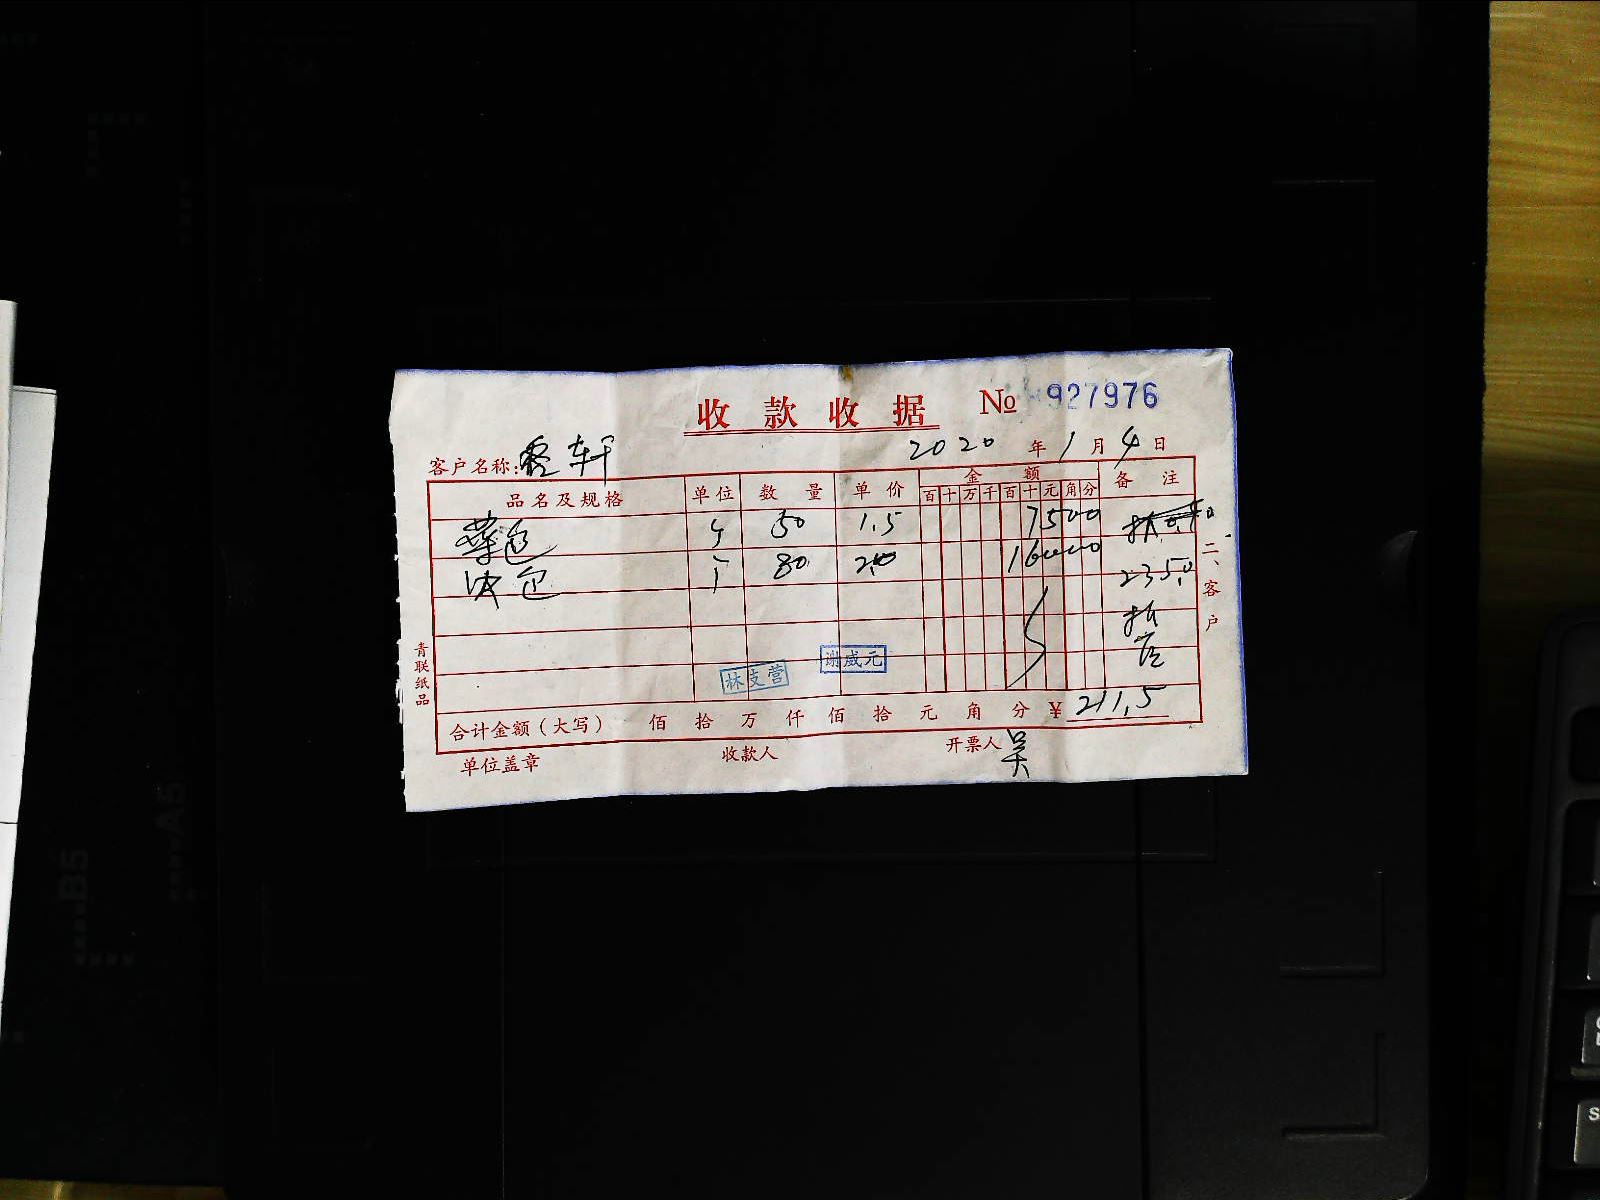 收款收据 № 927976
客户名称: 轩 2020年1月4日
品名及规格 单位 数量 单价 金额 备注
百十万千百十元角分
菜包 个 50 1.5 7500
包 个 80 2.0 16000
235.0
折
后
谢威元
林支营
合计金额(大写) 佰 拾 万 仟 佰 拾 元 角 分 ¥ 211.5
单位盖章 收款人 开票人 吴
青联纸品
二、客户
B5
A5